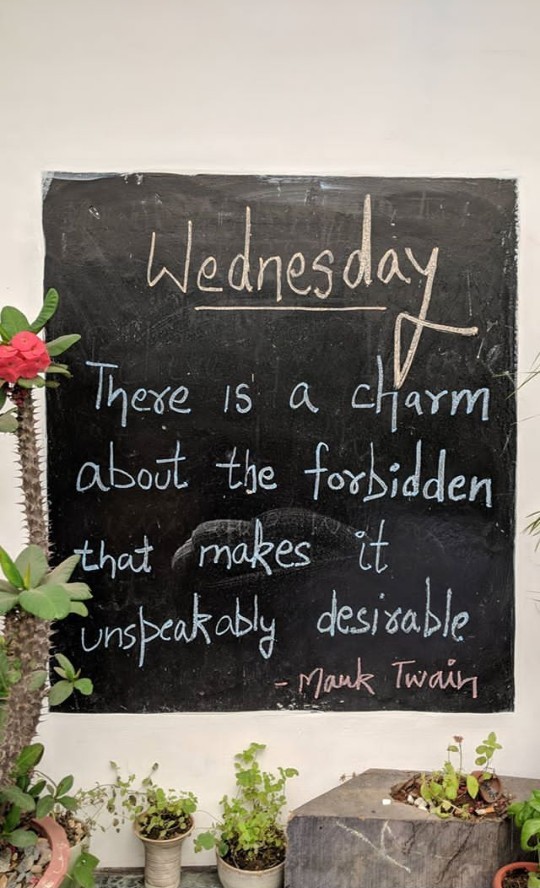 Wednesday
There is a charm
about the forbidden
that makes it
unspeakably desirable
- Mark Twain